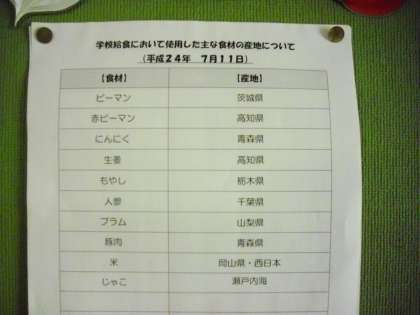 学校給食において使用した主な食材の産地について
（平成２４年　７月１１日）
【食材】　【産地】
ピーマン　茨城県
赤ピーマン　高知県
にんにく　青森県
生姜　高知県
もやし　栃木県
人参　千葉県
プラム　山梨県
豚肉　青森県
米　岡山県・西日本
じゃこ　瀬戸内海